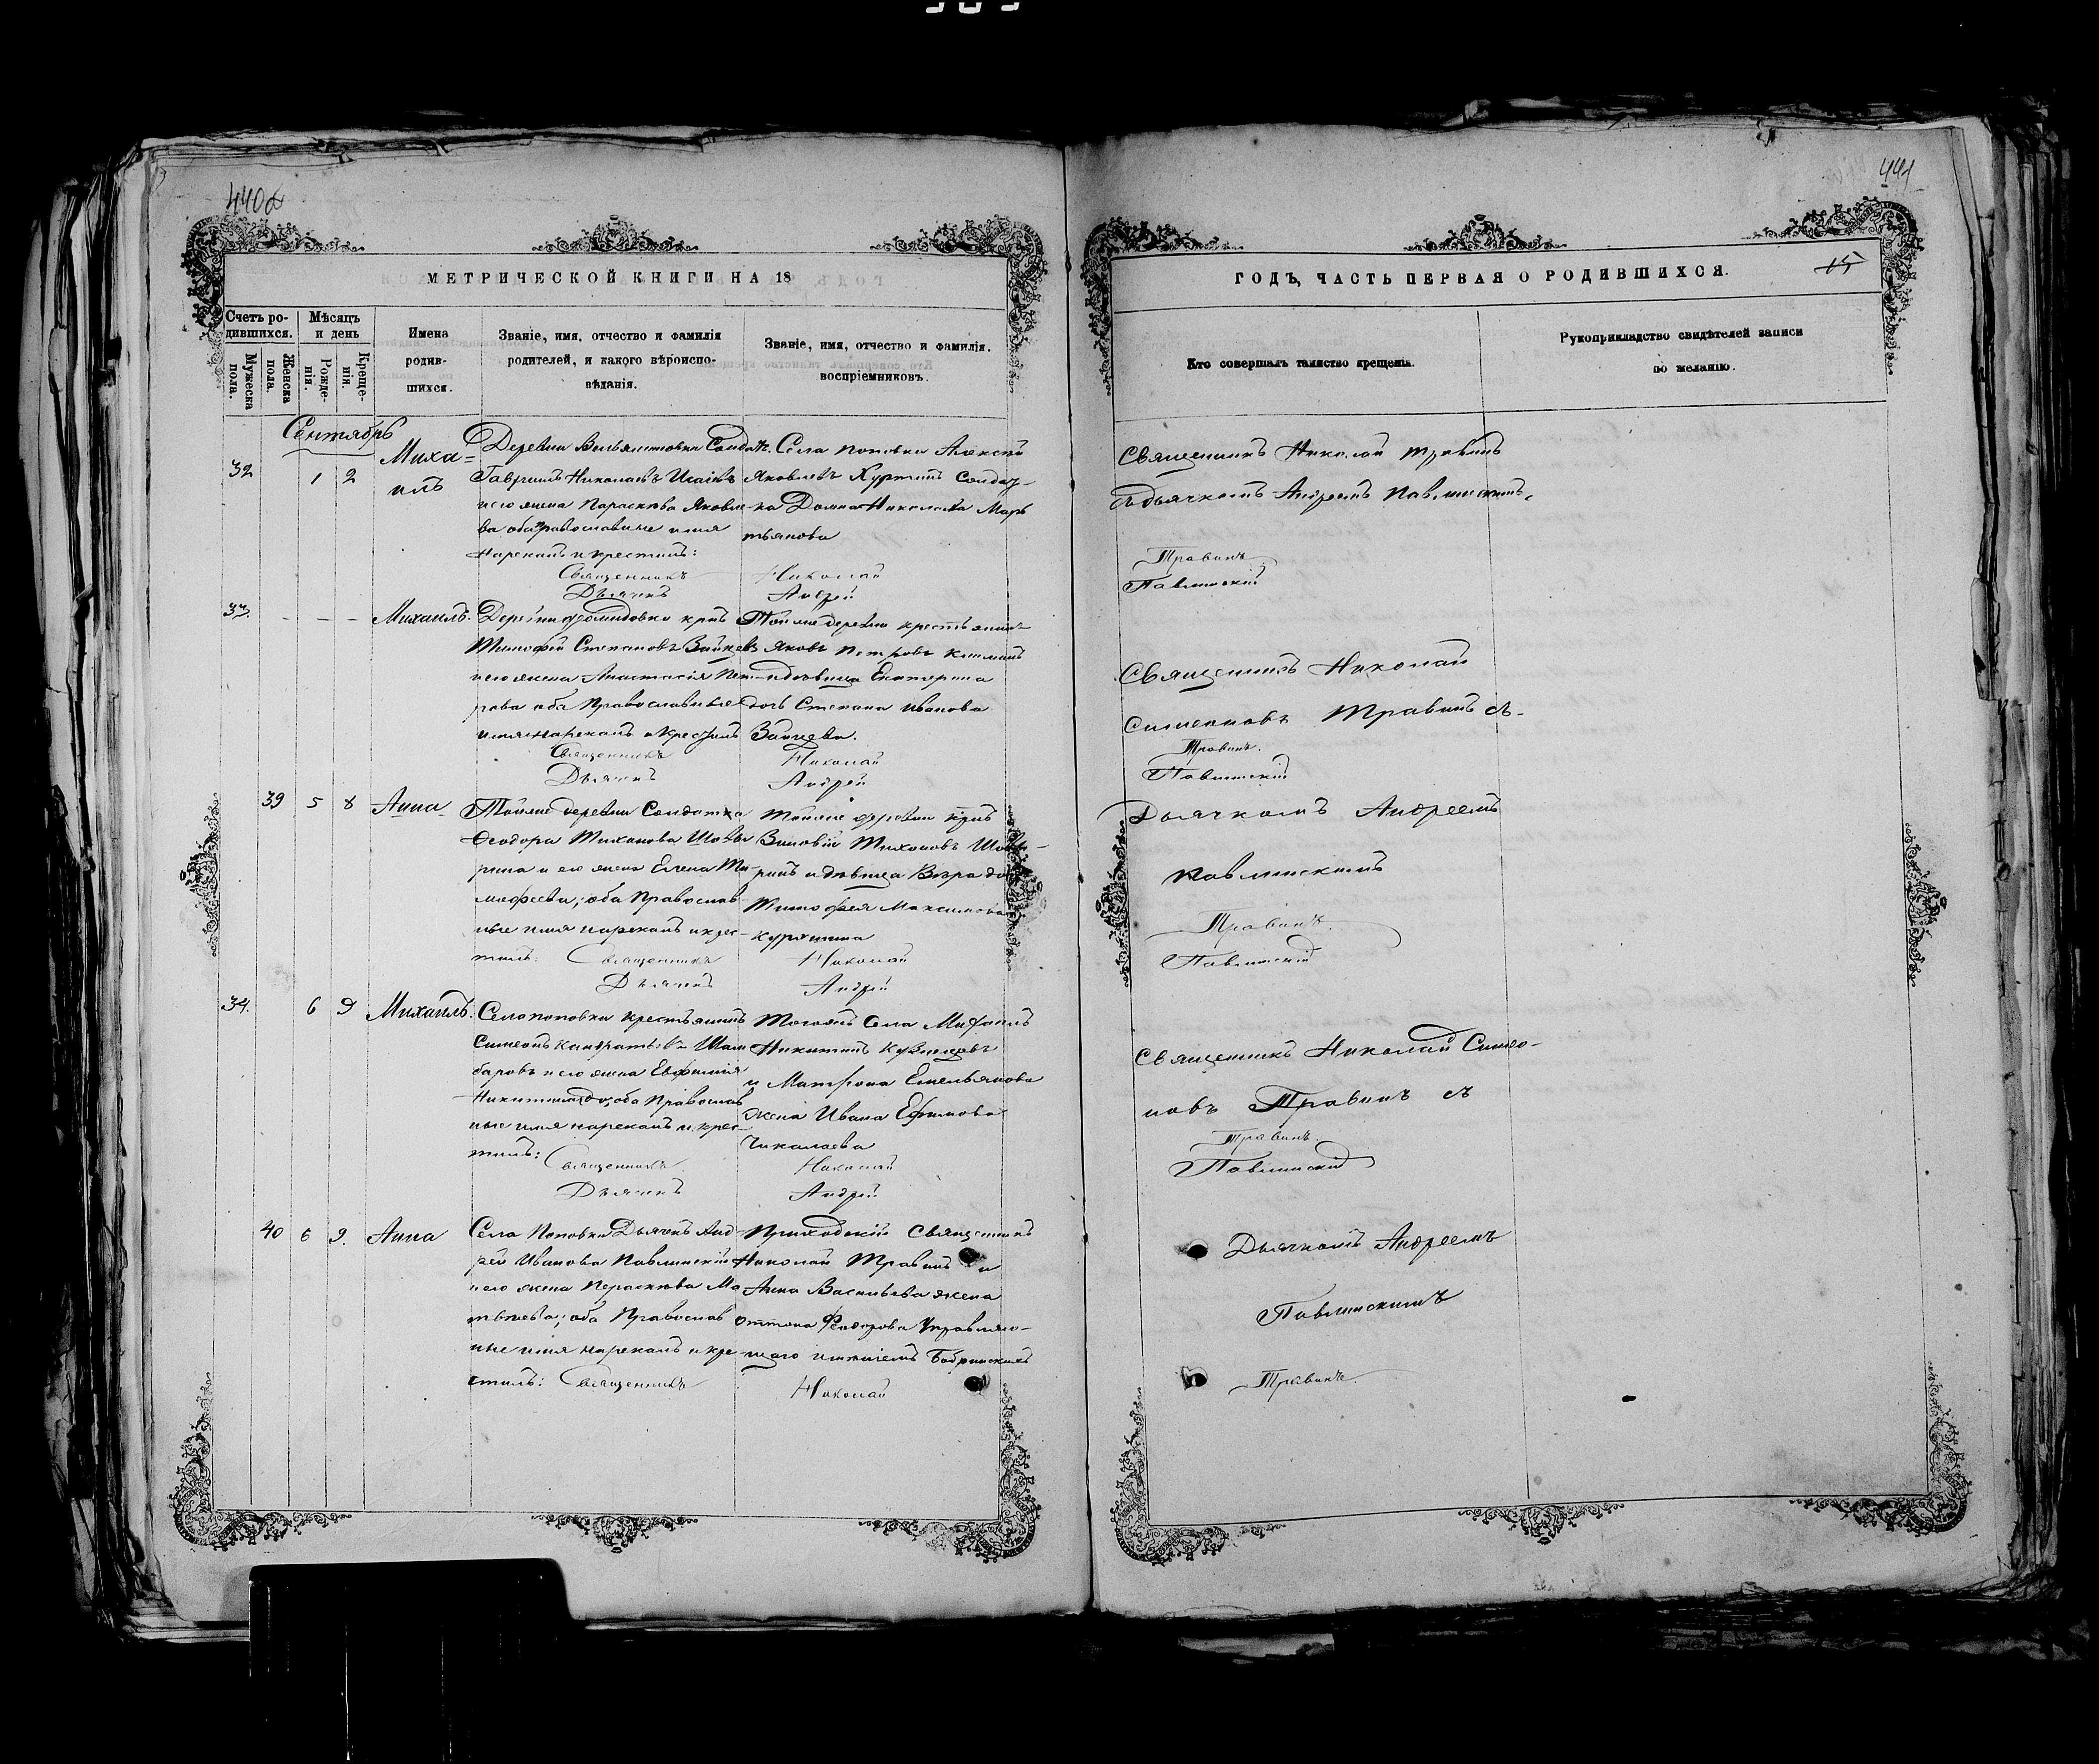 440об
МЕТРИЧЕСКОЙ КНИГИ НА 18
Счетъ ро-
дившихся.
Мужеска
пола.
Женска
пола.
Мѣсяцъ
и день
Рожде-
нія.
Креще-
нія.
Имена
родив-
шихся.
Званіе, имя, отчество и фамилія
родителей, и какого вѣроиспо-
вѣданія.
Званіе, имя, отчество и фамилія.
воспріемниковъ.
Сентябрь
32
1 2
Миха=
илъ
Деревни Солдатъ
Гавріилъ Николаевъ Исаевъ
и его жена Параскева Яковле-
ва оба православные имя
Нарекалъ и крестилъ:
Священникъ
Дьячекъ
Села Поповки Алексѣй
Яковлевъ Куртинъ Солдат-
ка Домна Николаева Мар
тьянова
Николай
Андрей
33.
- - -
Михаилъ.
Деревни крнъ
Тимофей Степановъ Зайцевъ
и его жена Анастасія Пет-
рова оба Православные
имя нарекалъ и крестилъ
Священникъ
Дьячекъ
Той же деревни крестьянинъ
Яковъ Петровъ
и дѣвица Екатерина
дочь Степана Иванова
Зайцева.
Николай
Андрей
39 5 8
Анна
Той же деревни Солдатка
Ѳеодора Тиханова
рина и его жена Елена Ти-
мофеева; оба Православ-
ные имя нарекалъ и крес-
тилъ: Священникъ
Дьячекъ
Той же деревни крнъ
Зиновій Тихоновъ
ринъ и дѣвица Вѣра дочь
Тимофея Максимова
Николай
Андрей
34.
6 9
Михаилъ.
Села Поповки Крестьянинъ
Симеонъ Кандратьевъ Шам
баровъ и его жена Евфимія
Никитина; оба Православ
ные имя нарекалъ и крес-
тилъ: Священникъ
Дьячекъ
Тогожъ Села Михаилъ
Никитинъ Кузнецовъ
и Матрона Емельянова
жена Ивана Ефимова
Чикалаева
Николай
Андрей
40 6 9.
Анна
Села Поповки Дьячекъ Анд-
рей Иванова Павлинскій
и его жена Параскева Ма
твѣева; оба Православ
ные имя нарекалъ и кре-
стилъ: Священникъ
Приходскій Священникъ
Николай Травинъ и
Анна Васильева жена
Антона Ѳеодорова Управляю-
щаго имѣніемъ Бобринскихъ
Николай
441
15
ГОДЪ, ЧАСТЬ ПЕРВАЯ О РОДИВШИХСЯ.
Кто совершалъ таинство крещенія.
Рукоприкладство свидѣтелей записи
по желанію.
Священникъ Николай Травинъ
съ дьячкомъ Андреемъ Павлинскимъ.
Травинъ
Павлинскій
Священникъ Николай
Симеоновъ Травинъ съ-
Травинъ.
Павлинскій
Дьячкомъ Андреемъ
Павлинскимъ
Травинъ.
Павлинскій
Священникъ Николай Симео-
новъ Травинъ съ
Травинъ.
Павлинскій
Дьячкомъ Андреемъ
Павлинскимъ
Травинъ.